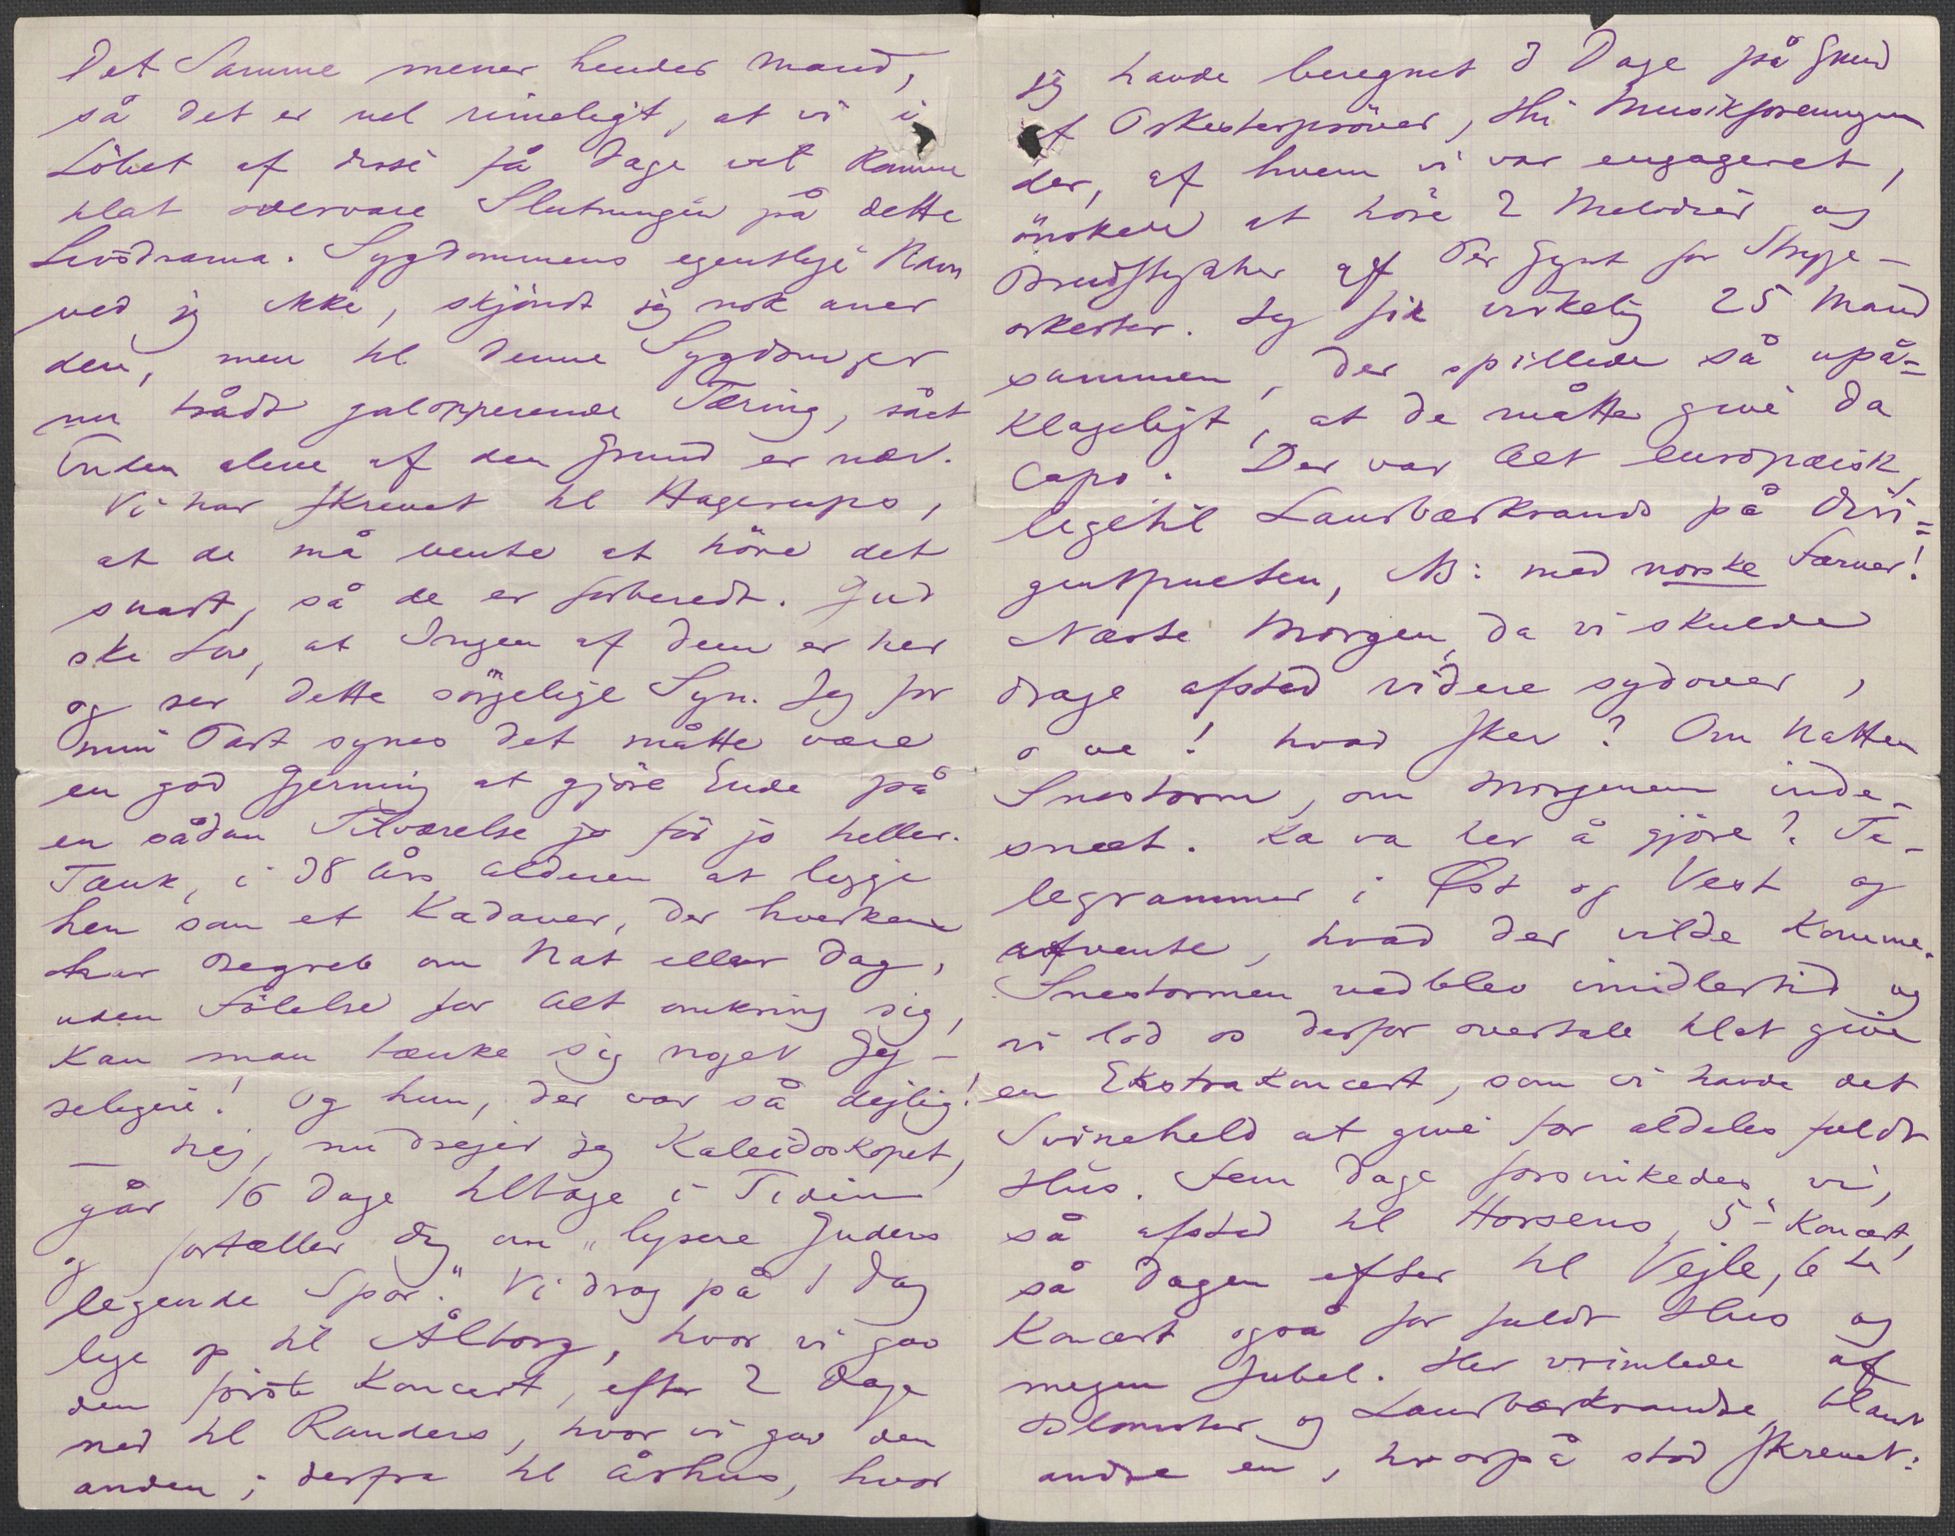 Det Samme mener hendes Mand,
så det er vel rimeligt, at vi i
Löbet af disse få Dage vil komme
til at overvære Slutningen på dette
Livsdrama. Sygdommens egentlige Navn
ved jeg ikke, skjöndt jeg nok aner
den, men til denne Sygdom er
nu trådt galopperende Tæring, såat
Enden alene af den Grund er nær.
Vi har skrevet til Hagerups,
at de må vente at höre det
snart, så de er forberedt. Gud
ske Lov, at Ingen af dem er her
og ser dette sörgelige Syn. Jeg for
min Part synes det måtte være
en god Gjerning at gjöre Ende på
en sådan Tilværelse jo för jo heller.
Tænk, i 38 Års Alderen at ligge
hen som et Kadaver, der hverken
har Begreb om Nat eller Dag,
uden Fölelse for Alt omkring sig,
kan man tænke sig noget Gy-
seligere! Og hun, der var så dejlig!
– Nej, nu drejer jeg Kaleidoskopet,
går 16 Dage tilbage i Tiden
og fortæller Dig om „lysere Guders
legende Spor." Vi drog på 1 Dag
lige op til Ålborg, hvor vi gav
den förste Koncert, efter 2 Dage
ned til Randers, hvor vi gav den
anden; derfra til Århus, hvor
jeg havde beregnet 3 Dage på Grund
af Orkesterpröver, thi Musikforeningen
der, af hvem vi var engageret,
önskede at höre 2 Melodier og
Brudstykker af Per Gynt for Stryge-
orkester. Jeg fik virkelig 25 Mand
sammen, der spillede så upå=
klageligt, at de måtte give Da
capo. Der var Alt europæisk,
lige til Laurbærkrands på Diri=
gentpulten, NB: med norske Farver!
Næste Morgen, da vi skulde
drage afsted videre sydover,
o ve! hvad sker? Om Natten
Snestorm, om Morgenen inde-
sneet. Ka va her å gjöre? Te-
legrammer i Øst og Vest og
afvente, hvad der vilde komme.
Snestormen vedblev imidlertid og
vi lod os derfor overtale til at give
en Ekstrakoncert, som vi havde det
Svineheld at give for aldeles fuldt
Hus. Fem Dage forsinkedes vi,
så afsted til Horsens, 5te Koncert,
så Dagen efter til Vejle, 6te
Koncert også for fuldt Hus og
megen Jubel. Her vrimlede af
Blomster og Laurbærkrandse, blandt
andre en, hvorpå stod skrevet: